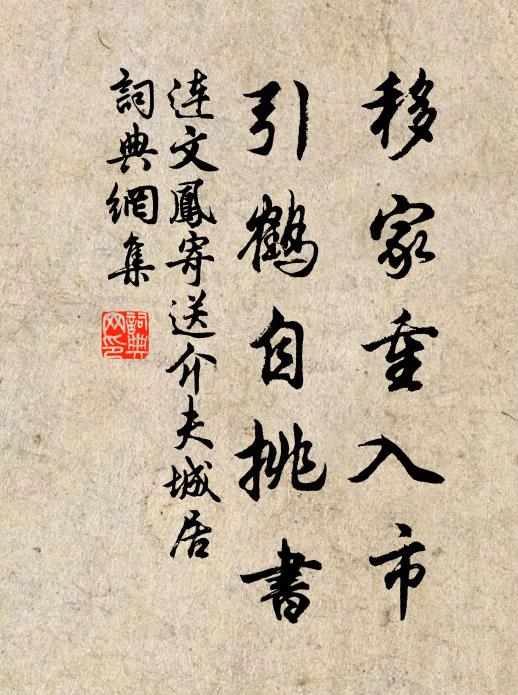 移家重入市
引鶴自挑書
连文鳳寄送介夫城居
詞典網集
詞典网印